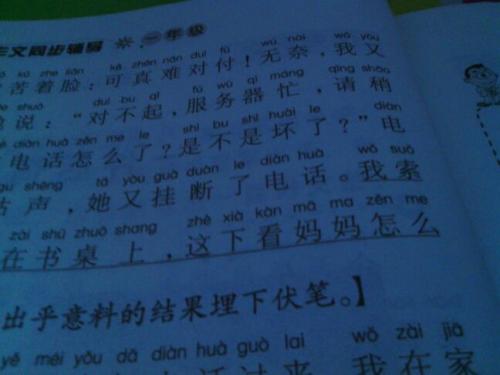 文同步辅导 一年级
kǔ zhe liǎn kě zhēn nán duì fù wú nài wǒ yòu
苦着脸：可真难对付！无奈，我又
shuō duì bu qǐ fú wù qì máng qǐng shāo
说：“对不起，服务器忙，请稍
diàn huà zěn me le shì bu shì huài le diàn
电话怎么了？是不是坏了？”电
gū shēng tā yòu guà duàn le diàn huà wǒ suǒ
咕声，她又挂断了电话。我索
zài shū zhuō shang zhè xià kàn mā ma zěn me
在书桌上，这下看妈妈怎么
出乎意料的结果埋下伏笔。】
yě méi yǒu dǎ diàn huà guò lai wǒ zài jiā
我在家